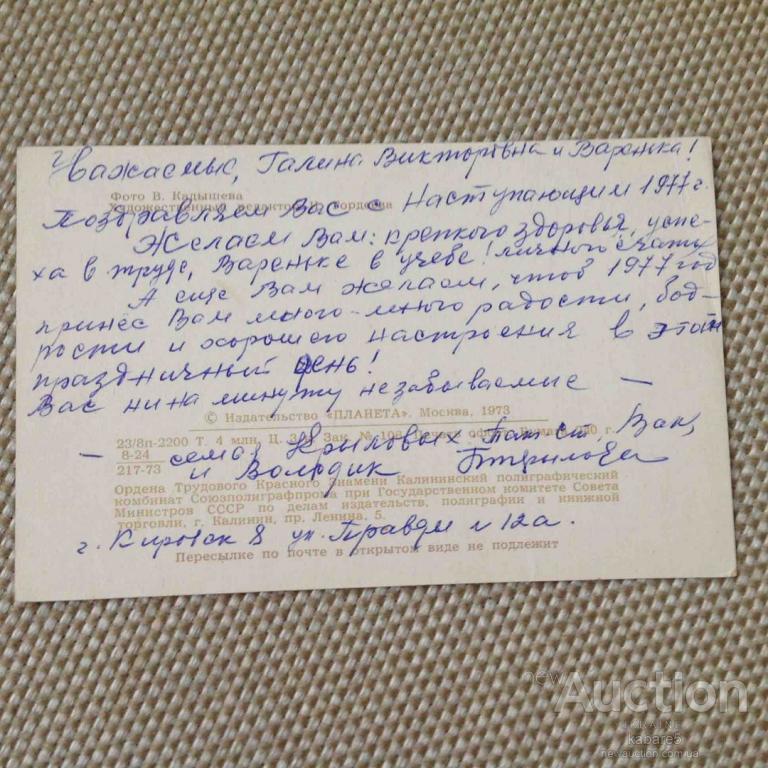 Уважаемые, Галина Викторовна и Варенька!
Фото В. Кадышева
Художественный редактор Гордеева
Поздравляем Вас с Наступающим 1977 г.
Желаем Вам: крепкого здоровья, успе-
ха в труде, Вареньке в учебе! личного счастья
А еще Вам желаем, чтоб 1977 год
принёс Вам много-много радости, бод-
рости и хорошего настроения в этот
праздничный день!
Вас ни на минуту незабываемые —
© Издательство «ПЛАНЕТА». Москва, 1973
23/8п-2200 Т. 4 млн. Ц. Зак. № 106. Печать офс. Бумага г.
8-24
217-73
— семья Крыловых.
и Володик
Ордена Трудового Красного Знамени Калининский полиграфический
комбинат Союзполиграфпрома при Государственном комитете Совета
Министров СССР по делам издательств, полиграфии и книжной
торговли, г. Калинин, пр. Ленина, 5.
г. Кировск 8 ул. Правды 12а.
Пересылке по почте в открытом виде не подлежит
new Auction
UKRAINE
kabare5
newauction.com.ua